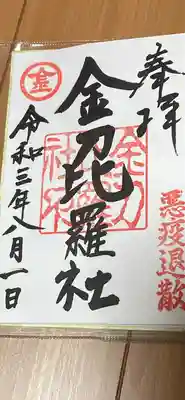 奉拝
悪疫退散
金刀比羅社
令和三年八月一日